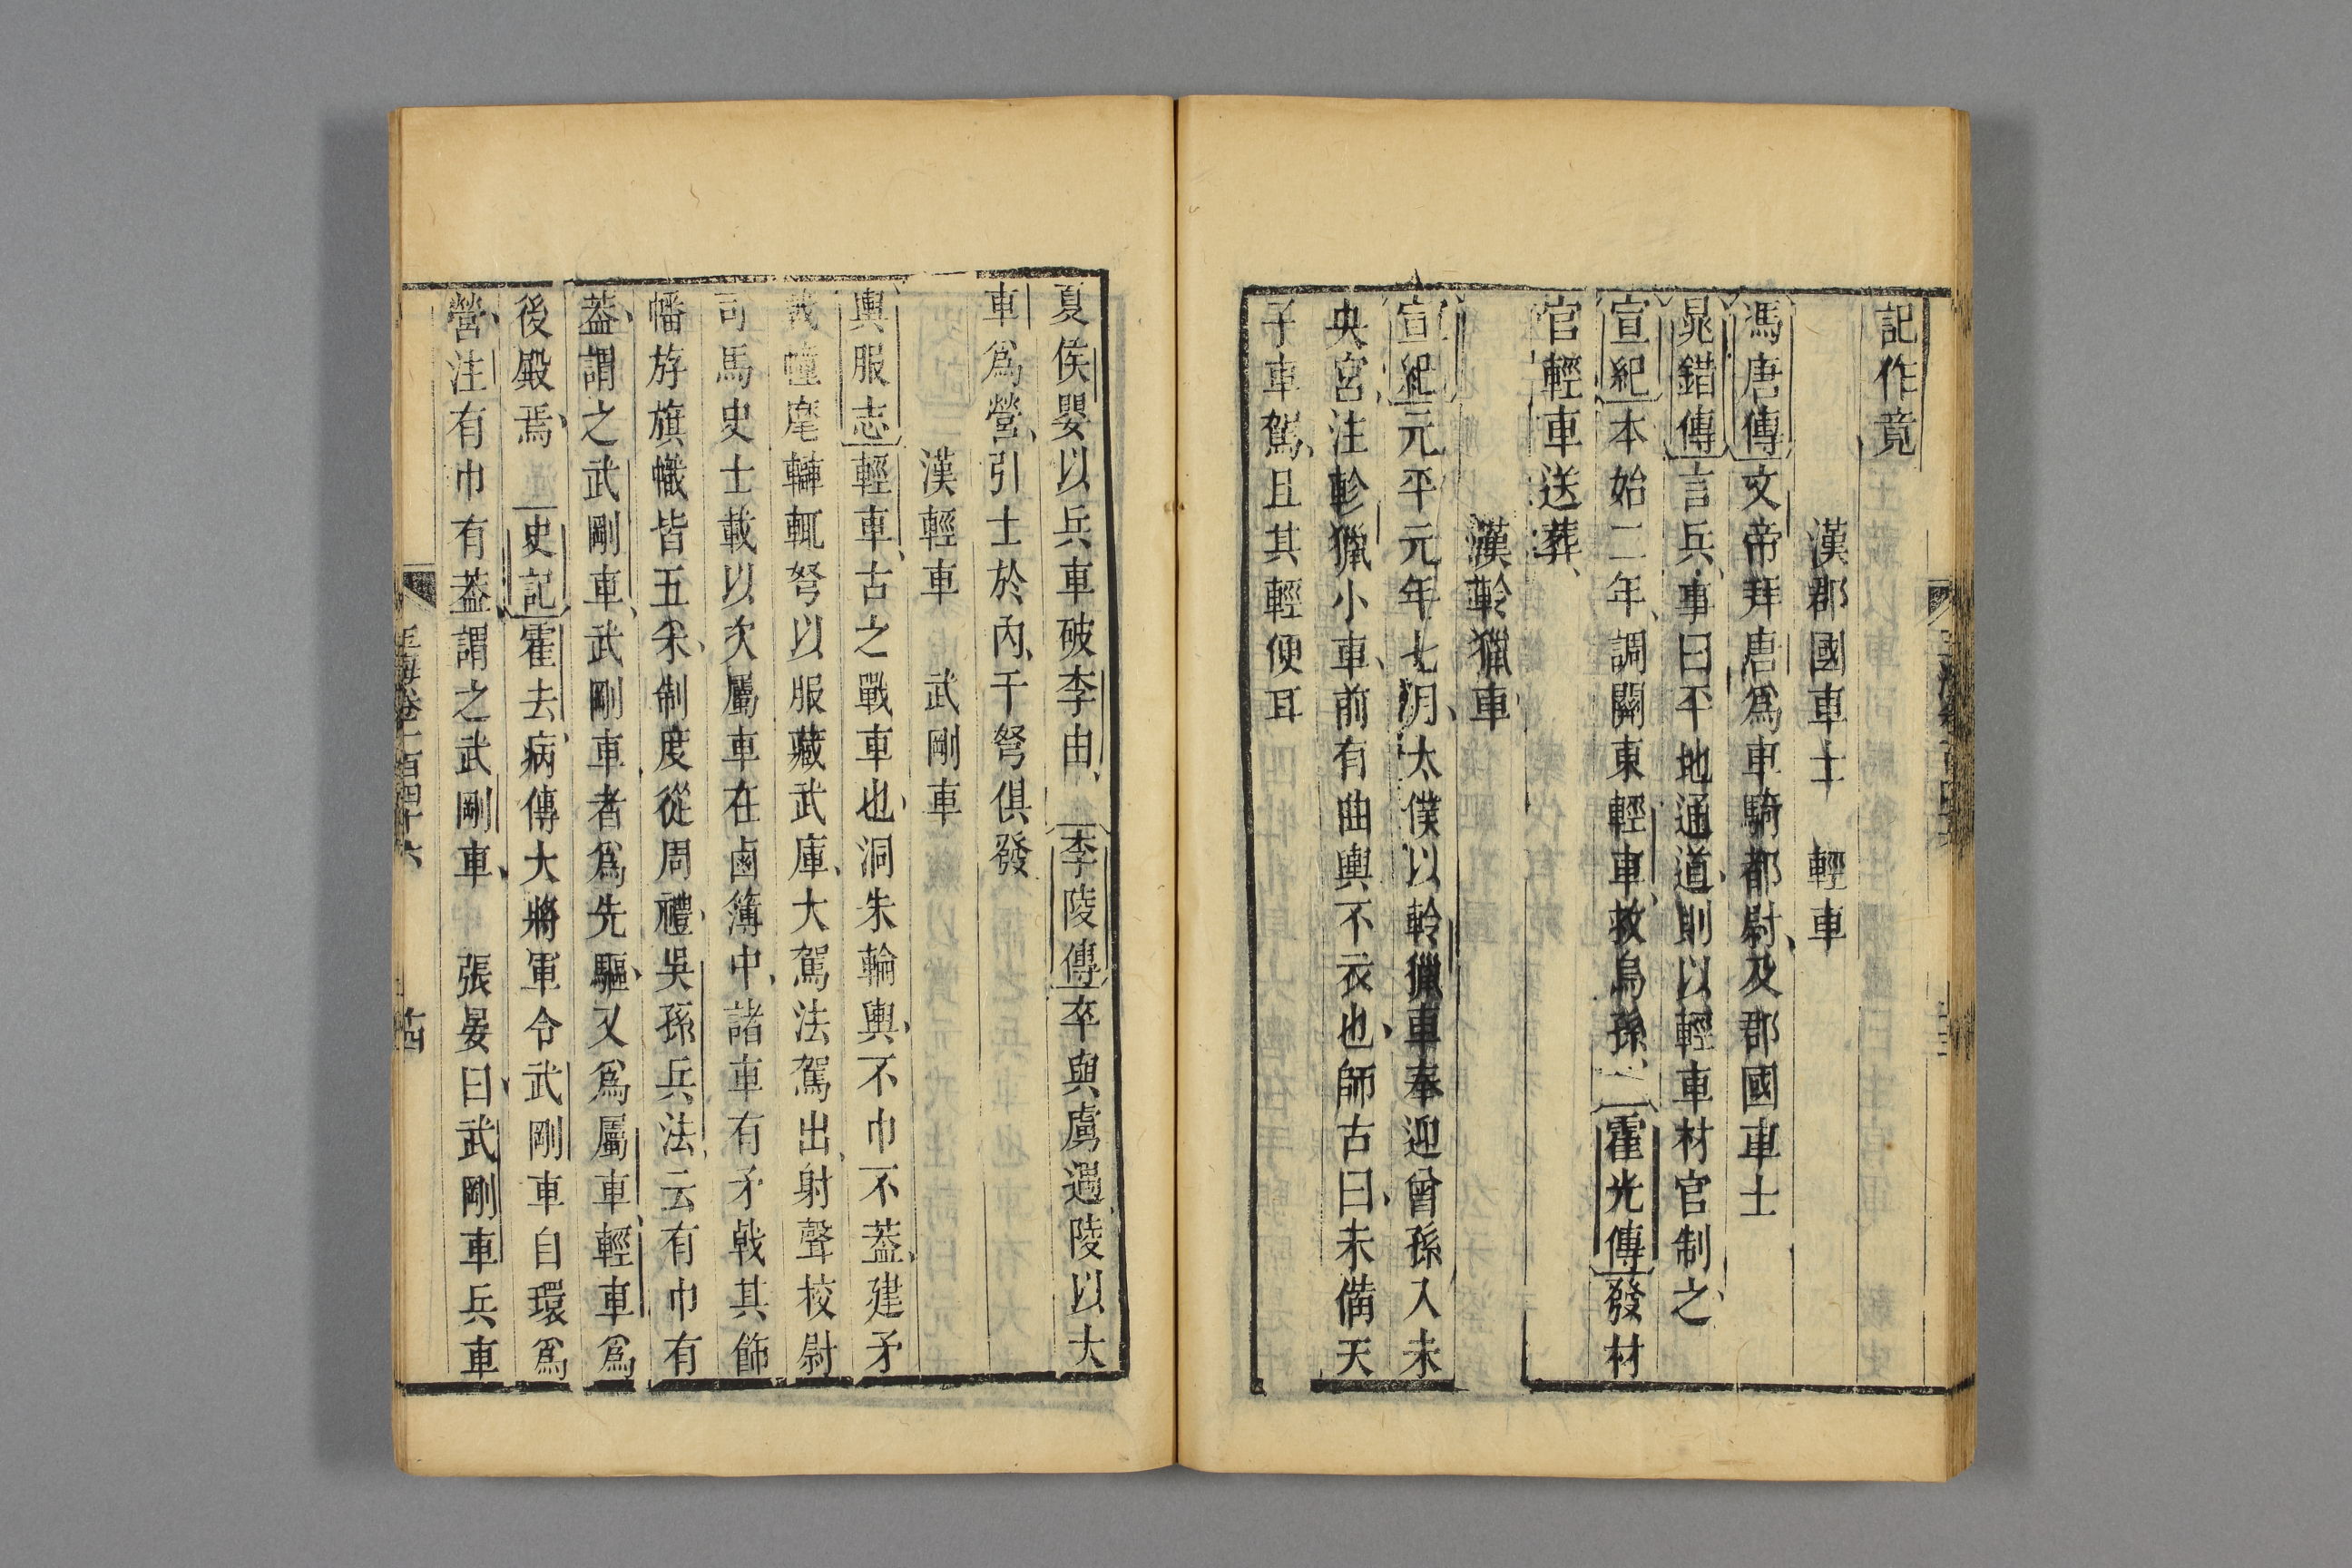 記作竟
漢郡國車士 輕車
馮唐傳文帝拜唐爲車騎都尉及郡國車士
鼂錯傳言兵事曰平地通道則以輕車材官制之
宣紀本始二年調關東輕車救烏孫 霍光傳發材
官輕車送葬
漢軨獵車
宣紀元平元年七月太僕以軨獵車奉迎曾孫入未
央宮注軫獵小車前有曲輿不衣也師古曰未備天
子車駕且其輕便耳
夏侯嬰以兵車破李由 李陵傳卒與虜遇陵以大
車爲營引士於內千弩俱發
漢輕車 武剛車
輿服志輕車古之戰車也洞朱輪輿不巾不蓋建矛
戟幢麾弩以服藏武庫大駕法駕出射聲校尉
司馬史士載以次屬車在鹵簿中諸車有矛戟其飾
幡斿旗幟皆五采制度從周禮吳孫兵法云有巾有
蓋謂之武剛車武剛車者爲先驅又爲屬車輕車爲
後殿焉 史記霍去病傳大將軍令武剛車自環爲
營注有巾有蓋謂之武剛車 張晏曰武剛車兵車
玉海卷一百四十六